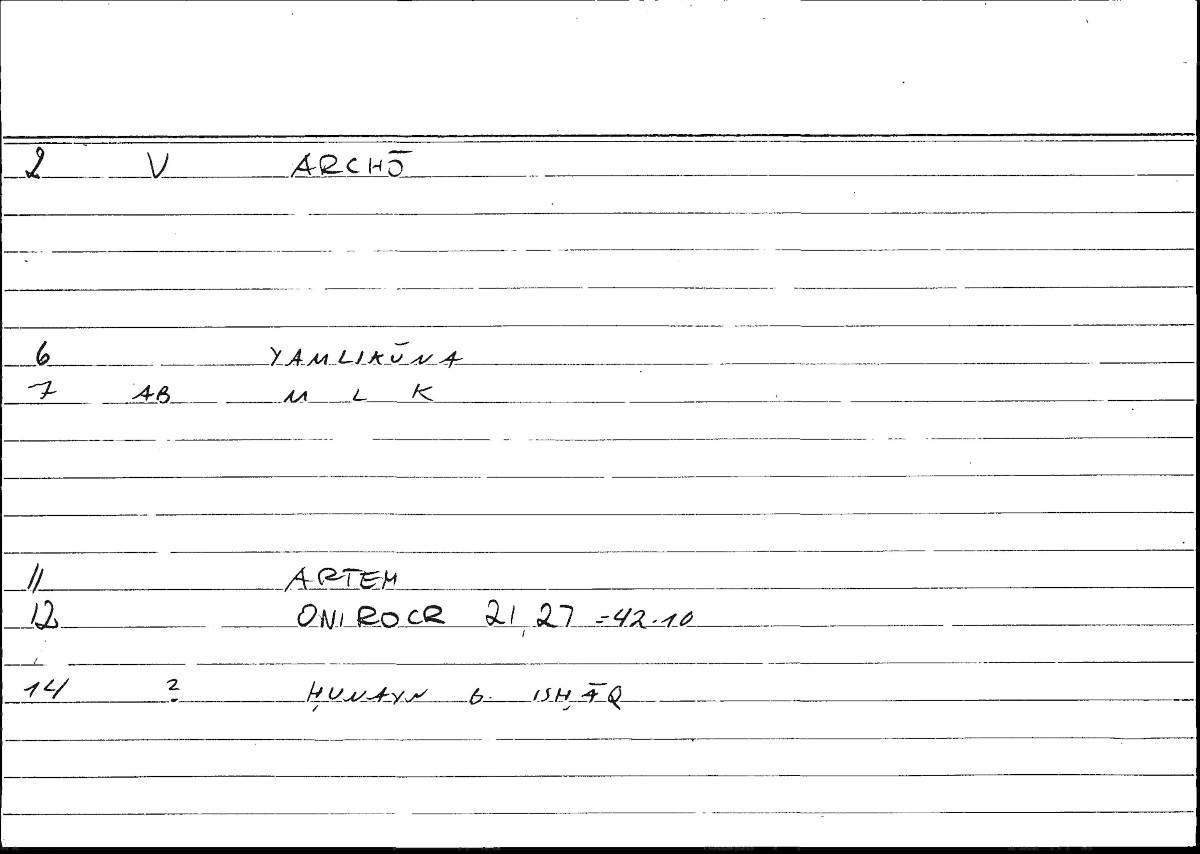 2 V ARCHŌ
6 YAMLIKŪNA
7 AB M L K
11 ARTEM
12 ONIROCR 21,27 =42.10
14 ? ḤUNAYN b. ISḤĀQ